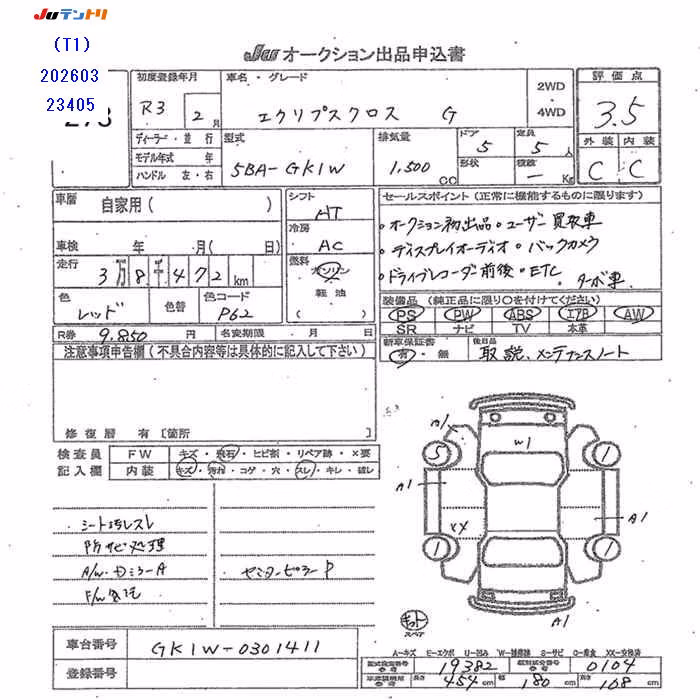 JUテントリ
(T1)
202603
23405
JU オークション出品申込書
初度登録年月
R3 2月
車名・グレード
エクリプスクロス G
2WD
・
4WD
評価点
3.5
ディーラー・並行
モデル年式 年
ハンドル 左・右
型式
5BA-GK1W
排気量
1,500 CC
ドア
5
形状
定員
5人
積載
- Kg
外装 内装
C C
車歴
自家用( )
車検 年 月( 日)
走行
38472km
色
レッド
色替
色コード
P62
R券 9,850円
名変期限 月 日
シフト
AT
冷房
AC
燃料
ガソリン
・
軽油
( )
セールスポイント(正常に機能するものに限ります)
・オークション初出品・ユーザー買取車
・ディスプレイオーディオ・バックカメラ
・ドライブレコーダー前後・ETC
ターボ車
装備品(純正品に限り○を付けてください)
PS PW ABS エアB AW
SR ナビ TV 本革
新車保証書
有・無
後日品
取説、メンテナンスノート
注意事項申告欄(不具合内容等は具体的に記入して下さい)
修復歴 有[箇所
検査員
記入欄
FW キズ・飛石・ヒビ割・リペア跡・×要
内装 キズ・汚れ・コゲ・穴・スレ・キレ・破レ
シート汚レスレ
防サビ処理
A/W・DミラーA
センターピラーP
A1
W1
5
1
A1
XX
A1
1
1
A1
スペア
車台番号
GK1W-0301411
登録番号
A-キズ E-エクボ U-凹み W-補修跡 S-サビ C-腐食 XX-交換済
型式指定番号
参考
19382
類別区分番号
参考
0104
車両諸元
参考
長さ
454cm
幅
180cm
高さ
168cm